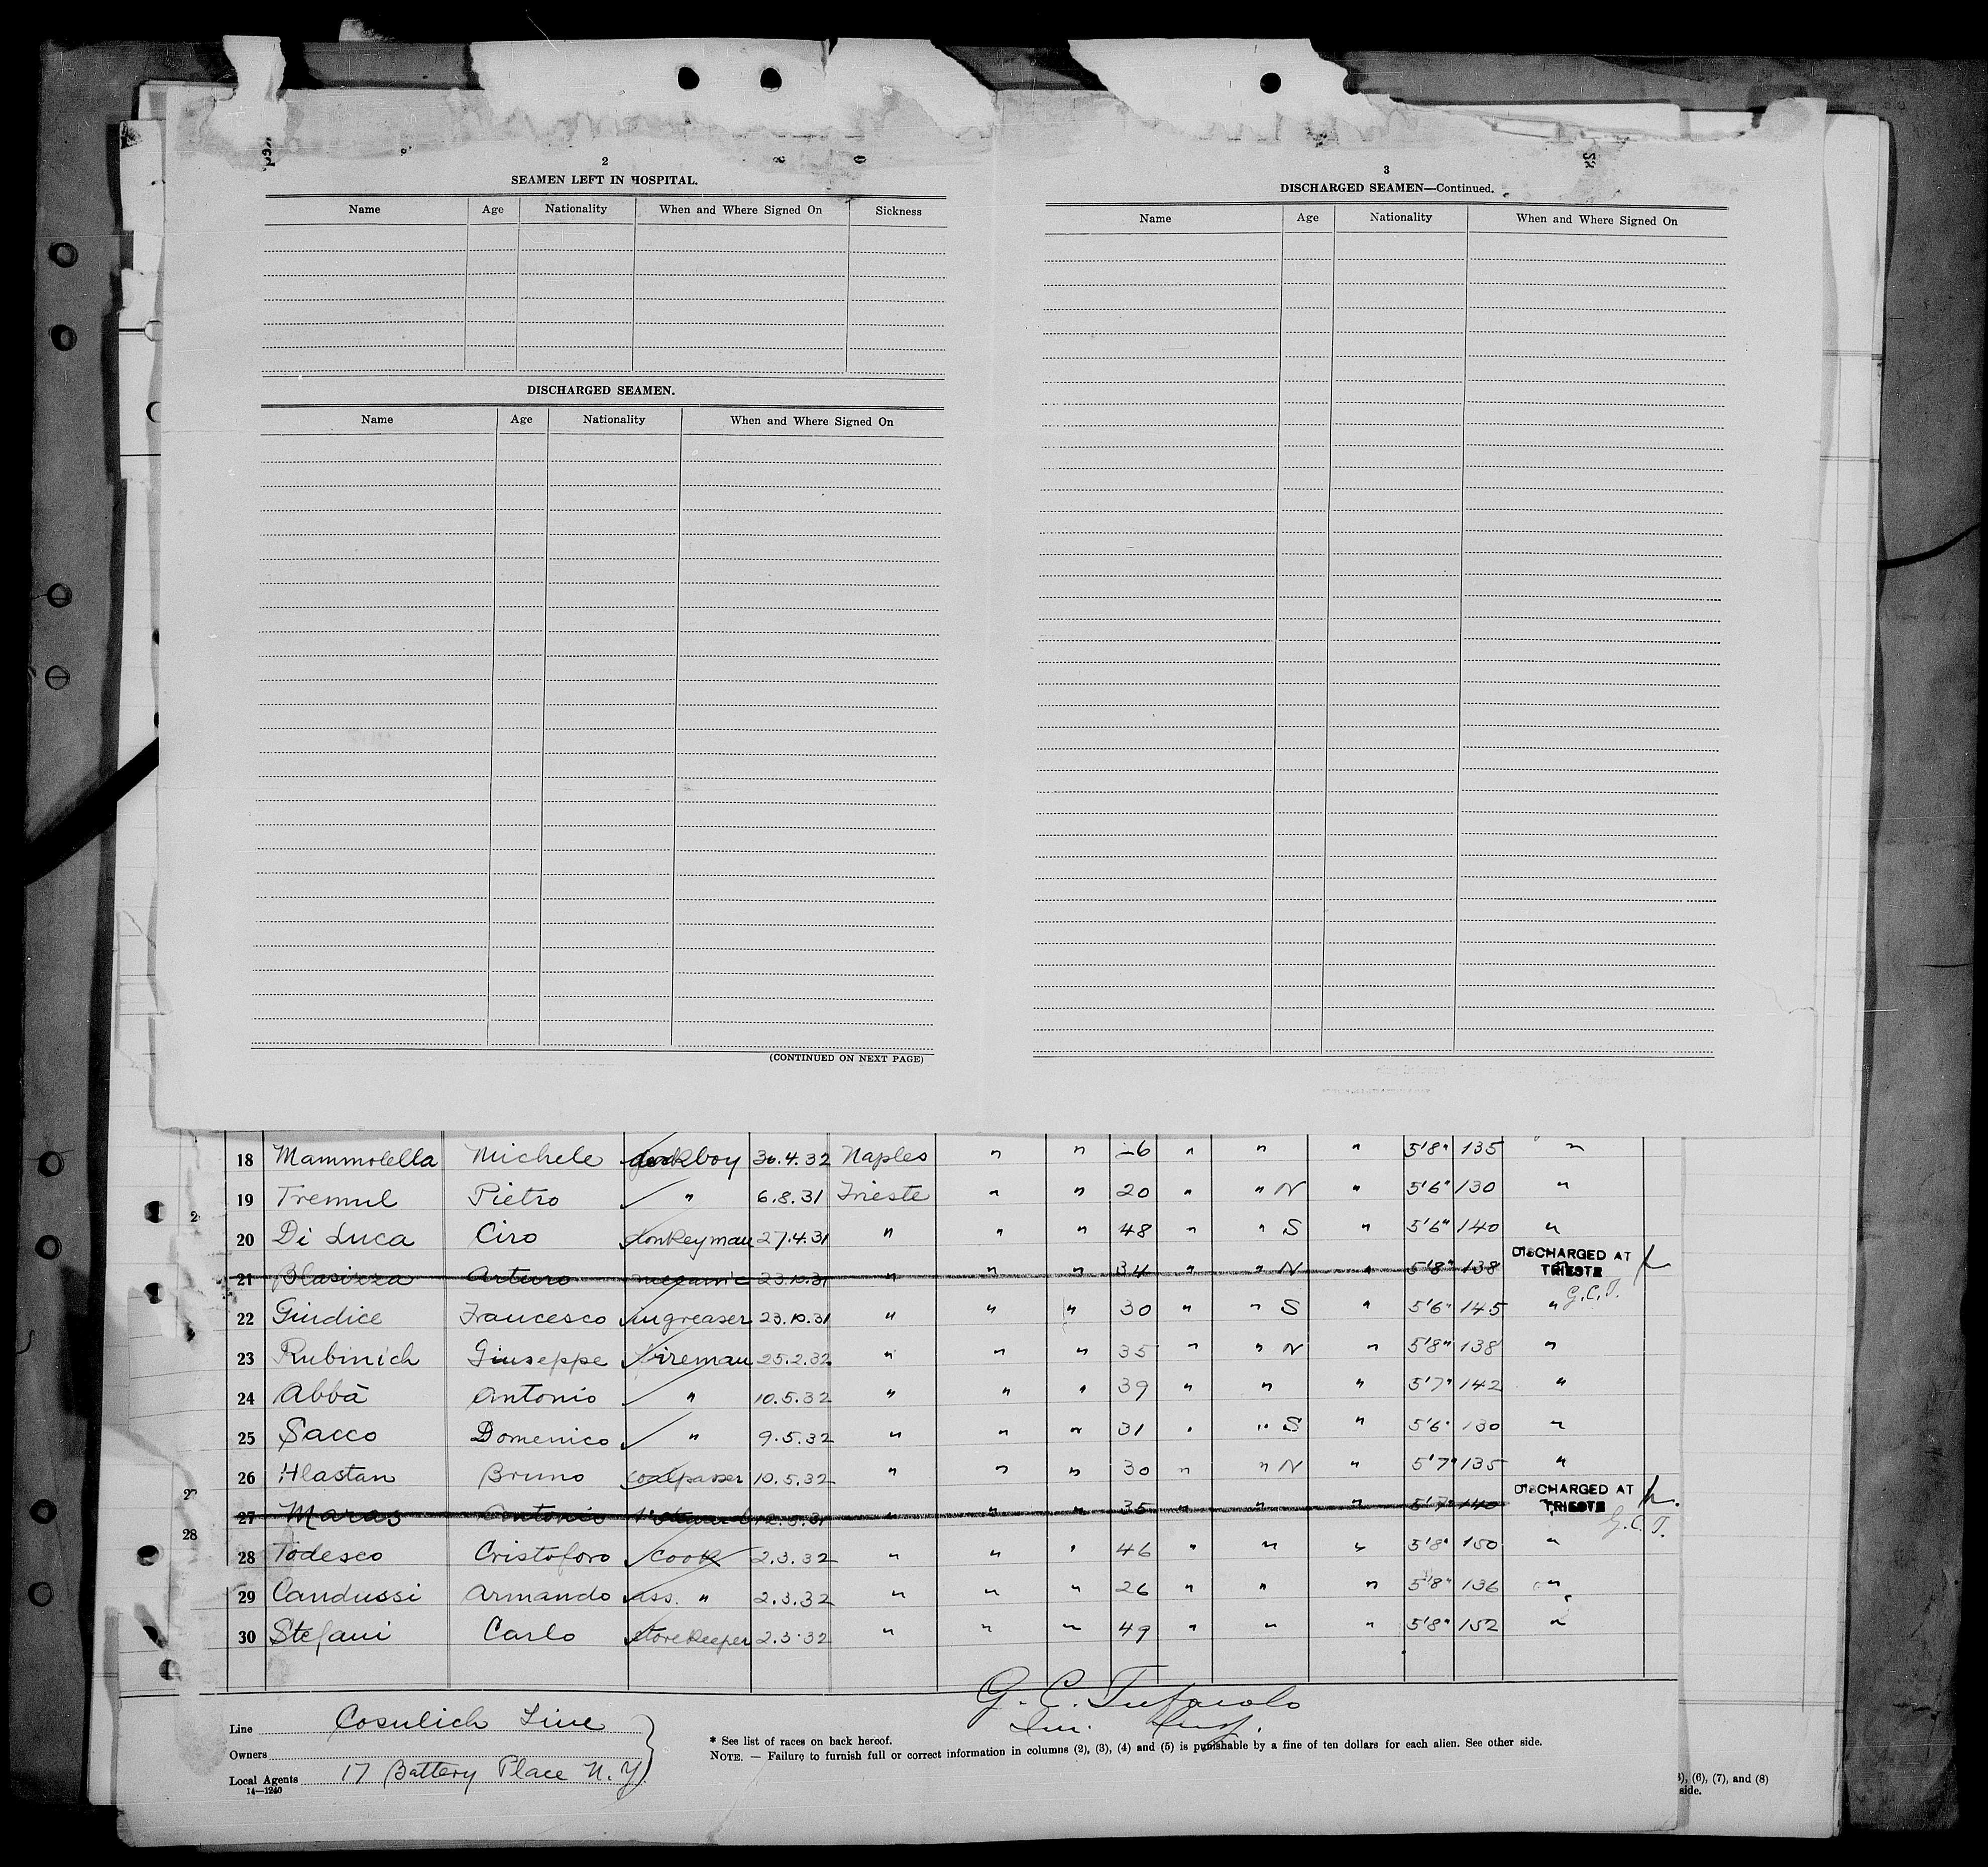 2
SEAMEN LEFT IN HOSPITAL.
Name Age Nationality When and Where Signed On Sickness
DISCHARGED SEAMEN.
Name Age Nationality When and Where Signed On
(CONTINUED ON NEXT PAGE)
3
DISCHARGED SEAMEN—Continued.
Name Age Nationality When and Where Signed On
18 Mammolella Michele deckboy 30.4.32 Naples " " 6 " " " 5'8" 135 "
19 Tremul Pietro " 6.8.31 Trieste " " 20 " " N " 5'6" 130 "
20 Di Luca Ciro donkeyman 27.4.31 " " " 48 " " S " 5'6" 140 "
21 Blasizza Arturo mecanic 23.10.31 " " " 34 " " N " 5'8" 138 " DISCHARGED AT TRIESTE
G.C.T.
22 Giudice Francesco greaser 23.10.31 " " " 30 " " S " 5'6" 145 "
23 Rubinich Giuseppe fireman 25.2.32 " " " 35 " " N " 5'8" 138 "
24 Abbà Antonio " 10.5.32 " " " 39 " " " 5'7" 142 "
25 Sacco Domenico " 9.5.32 " " " 31 " " S " 5'6" 130 "
26 Hlastan Bruno coalpasser 10.5.32 " " " 30 " " N " 5'7" 135 "
27 Maras Antonio 12.5.31 " " " 35 " " " 5'7" 140 DISCHARGED AT TRIESTE
G.C.T.
28
28 Todesco Cristoforo cook 2.3.32 " " " 46 " " " 5'8" 150 "
29 Candussi Armando ass. " 2.3.32 " " " 26 " " " 5'8" 136 "
30 Stefani Carlo storekeeper 2.3.32 " " " 49 " " " 5'8" 152 "
G. C. Tufarolo
Im. Insp.
Line Cosulich Line
Owners
Local Agents 17 Battery Place N.Y.
14—1240
* See list of races on back hereof.
NOTE. — Failure to furnish full or correct information in columns (2), (3), (4) and (5) is punishable by a fine of ten dollars for each alien. See other side.
), (6), (7), and (8)
side.